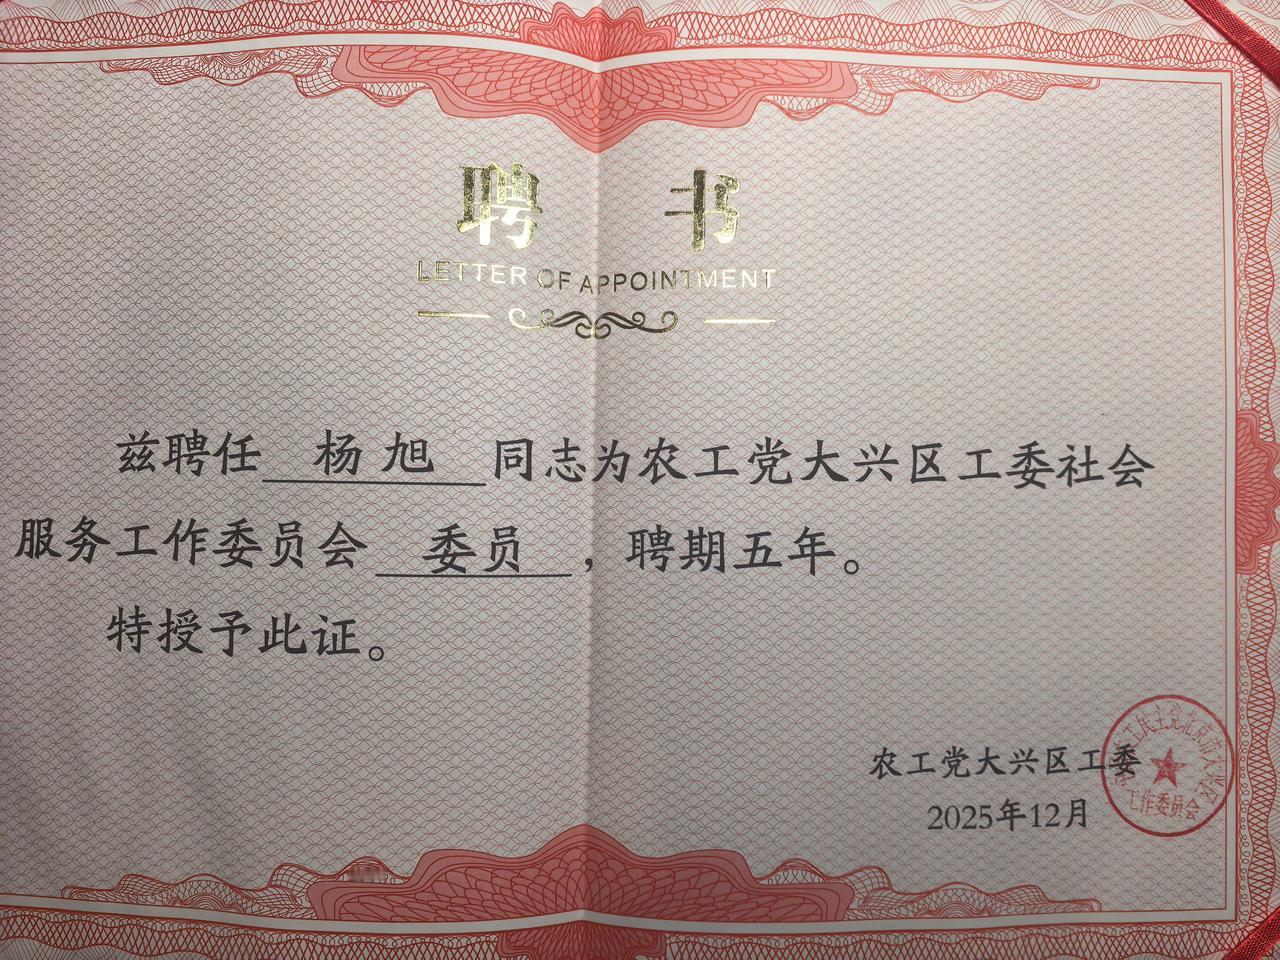 聘 书
LETTER OF APPOINTMENT
兹聘任 杨旭 同志为农工党大兴区工委社会
服务工作委员会 委员 ，聘期五年。
特授予此证。
农工党大兴区工委
2025年12月
工民主党北京市大兴区
工作委员会